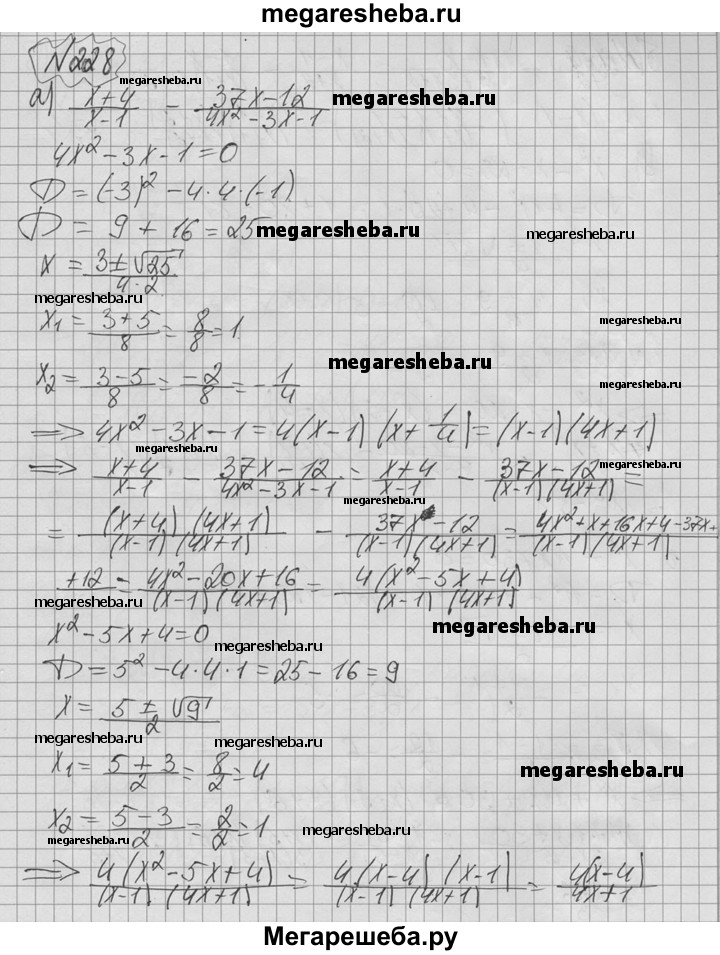 megaresheba.ru
N228
megaresheba.ru
а) (x+4)/(x-1) - (37x-12)/(4x²-3x-1) megaresheba.ru
4x²-3x-1=0
D=(-3)²-4·4·(-1)
D = 9 + 16 = 25 megaresheba.ru megaresheba.ru
x = (3±√25)/(4·2)
megaresheba.ru
x₁ = (3+5)/8 = 8/8 = 1 megaresheba.ru
megaresheba.ru
x₂ = (3-5)/8 = (-2)/8 = -1/4 megaresheba.ru
=> 4x²-3x-1=4(x-1)(x+1/4)=(x-1)(4x+1)
megaresheba.ru
=> (x+4)/(x-1) - (37x-12)/(4x²-3x-1) = (x+4)/(x-1) - (37x-12)/((x-1)(4x+1)) =
megaresheba.ru
= ((x+4)(4x+1))/((x-1)(4x+1)) - (37x-12)/((x-1)(4x+1)) = (4x²+x+16x+4-37x+)/((x-1)(4x+1))
+12 = (4x²-20x+16)/((x-1)(4x+1)) = (4(x²-5x+4))/((x-1)(4x+1))
megaresheba.ru
megaresheba.ru
x²-5x+4=0 megaresheba.ru
D=5²-4·4·1=25-16=9
x = (5±√9)/2
megaresheba.ru megaresheba.ru
x₁ = (5+3)/2 = 8/2 = 4 megaresheba.ru
x₂ = (5-3)/2 = 2/2 = 1 megaresheba.ru
megaresheba.ru
=> (4(x²-5x+4))/((x-1)(4x+1)) = (4(x-4)(x-1))/((x-1)(4x+1)) = (4(x-4))/(4x+1)
Мегарешеба.ру